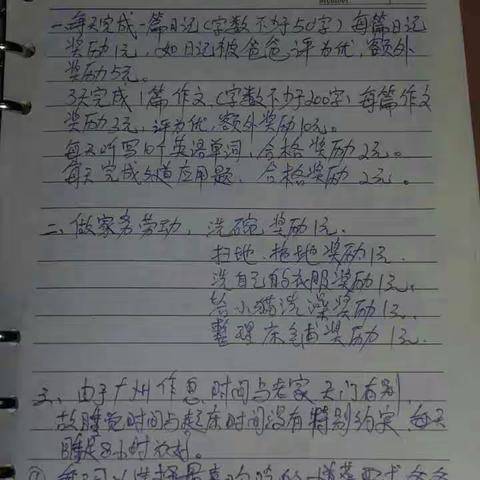 一、每天完成一篇日记(字数不少于50字)每篇日记
奖励1元,如日记被爸爸评为优,额外
奖励5元。
3天完成1篇作文(字数不少于200字)每篇作文
奖励3元,评为优,额外奖励10元。
每天听写10个英语单词,合格奖励2元。
每天完成 道应用题,合格奖励2元。
二、做家务劳动,洗碗奖励1元.
扫地.拖地奖励1元.
洗自己的衣服奖励1元.
给小猫洗澡奖励1元.
整理床铺奖励1元.
三、由于广州作息时间与老家天门有别,
故睡觉时间与起床时间没有特别约定,每天
睡足8小时为好。
① 每 可以选择